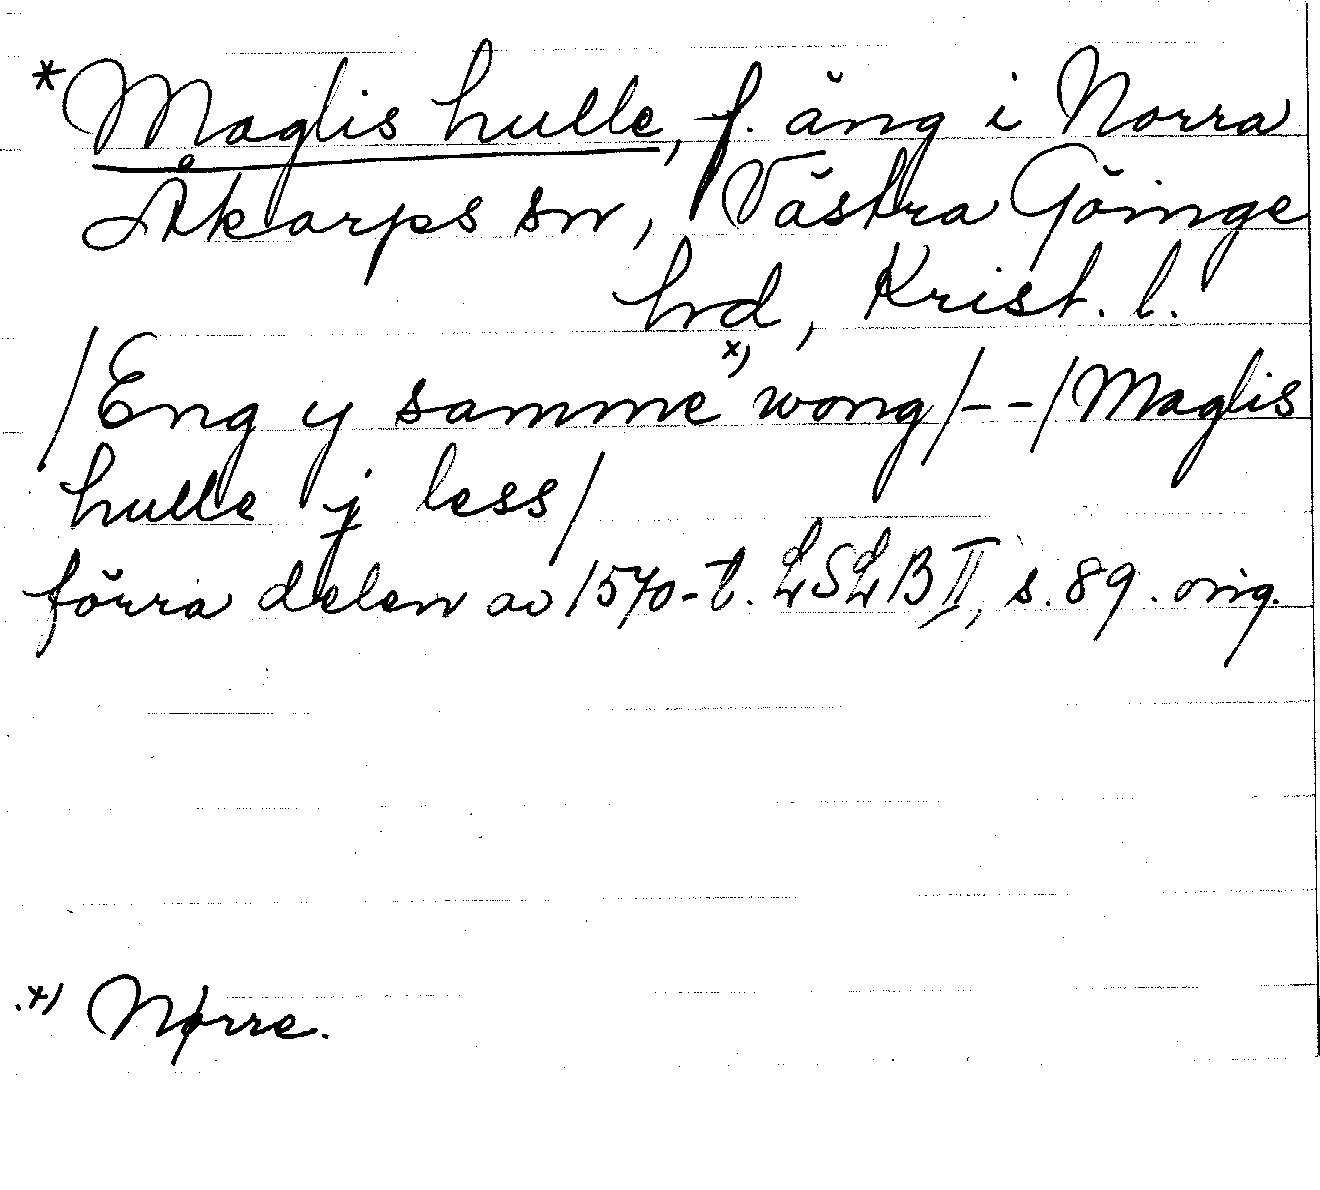 *Maglis hulle, f. äng i Norra
Åkarps sn, Västra Göinge
hrd, Krist. l.
/Eng y samme x) wong/--/Maglis
hulle j less/
förra delen av 1570-t. LSLB II, s. 89. orig.
x) Nørre.